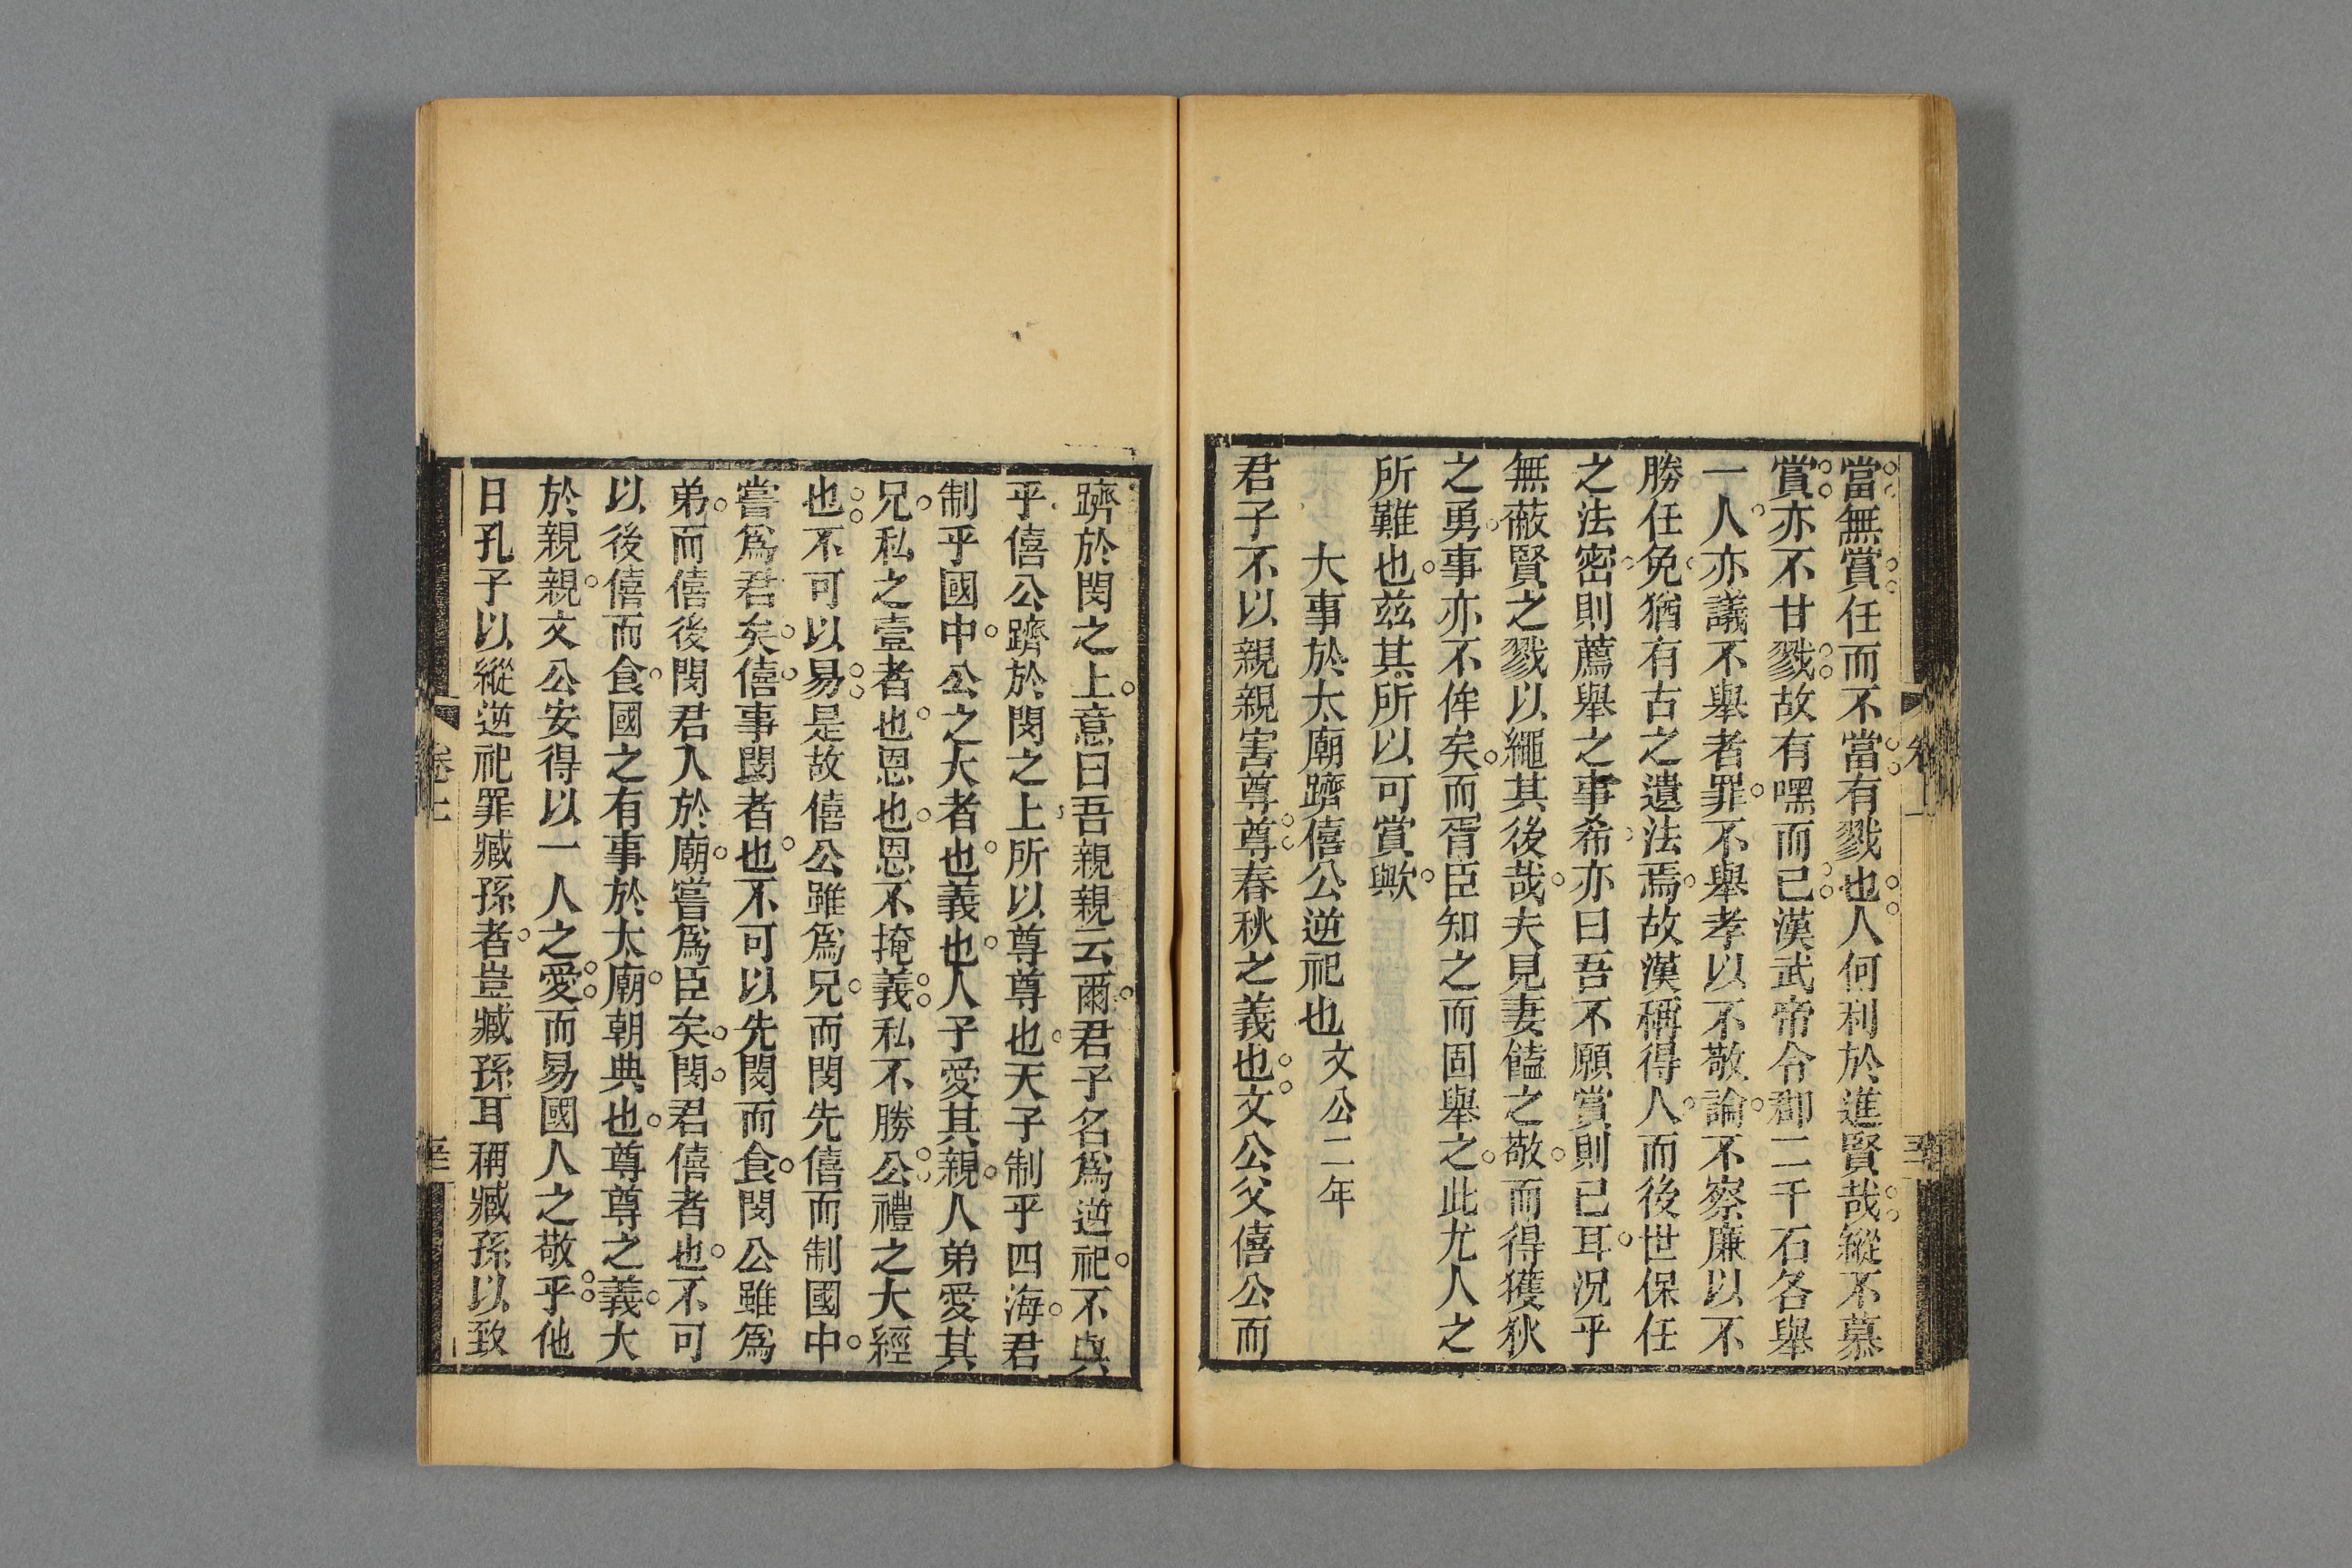 當無賞任而不當有戮也人何利於進賢哉縱不慕
賞亦不甘戮故有嘿而已漢武帝令郡二千石各舉
一人亦議不舉者罪不舉孝以不敬論不察廉以不
勝任免猶有古之遺法焉故漢稱得人而後世保任
之法密則薦舉之事希亦曰吾不願賞則已耳況乎
無蔽賢之戮以繩其後哉夫見妻饁之敬而得獲狄
之勇事亦不侔矣而胥臣知之而固舉之此尤人之
所難也兹其所以可賞歟
大事於太廟躋僖公逆祀也文公二年
君子不以親親害尊尊春秋之義也文公父僖公而
躋於閔之上意曰吾親親云爾君子名爲逆祀不與
乎僖公躋於閔之上所以尊尊也天子制乎四海君
制乎國中公之大者也義也人子愛其親人弟愛其
兄私之壹者也恩也恩不掩義私不勝公禮之大經
也不可以易是故僖公雖爲兄而閔先僖而制國中
嘗爲君矣僖事閔者也不可以先閔而食閔公雖爲
弟而僖後閔君入於廟嘗爲臣矣閔君僖者也不可
以後僖而食國之有事於太廟朝典也尊尊之義大
於親親文公安得以一人之愛而易國人之敬乎他
日孔子以縱逆祀罪臧孫者豈臧孫耳稱臧孫以致
卷上